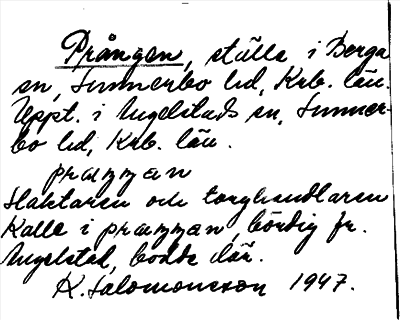 Prången, ställe i Berga
sn, Sunnerbo hd, Krb. län.
Uppt. i Angelstads sn, Sunner-
bo hd, Krb. län.
præŋŋən
Slaktaren och torghandlaren
Kalle i præŋŋən, bördig fr.
Angelstad, bodde där.
K. Salomonsson 1947.